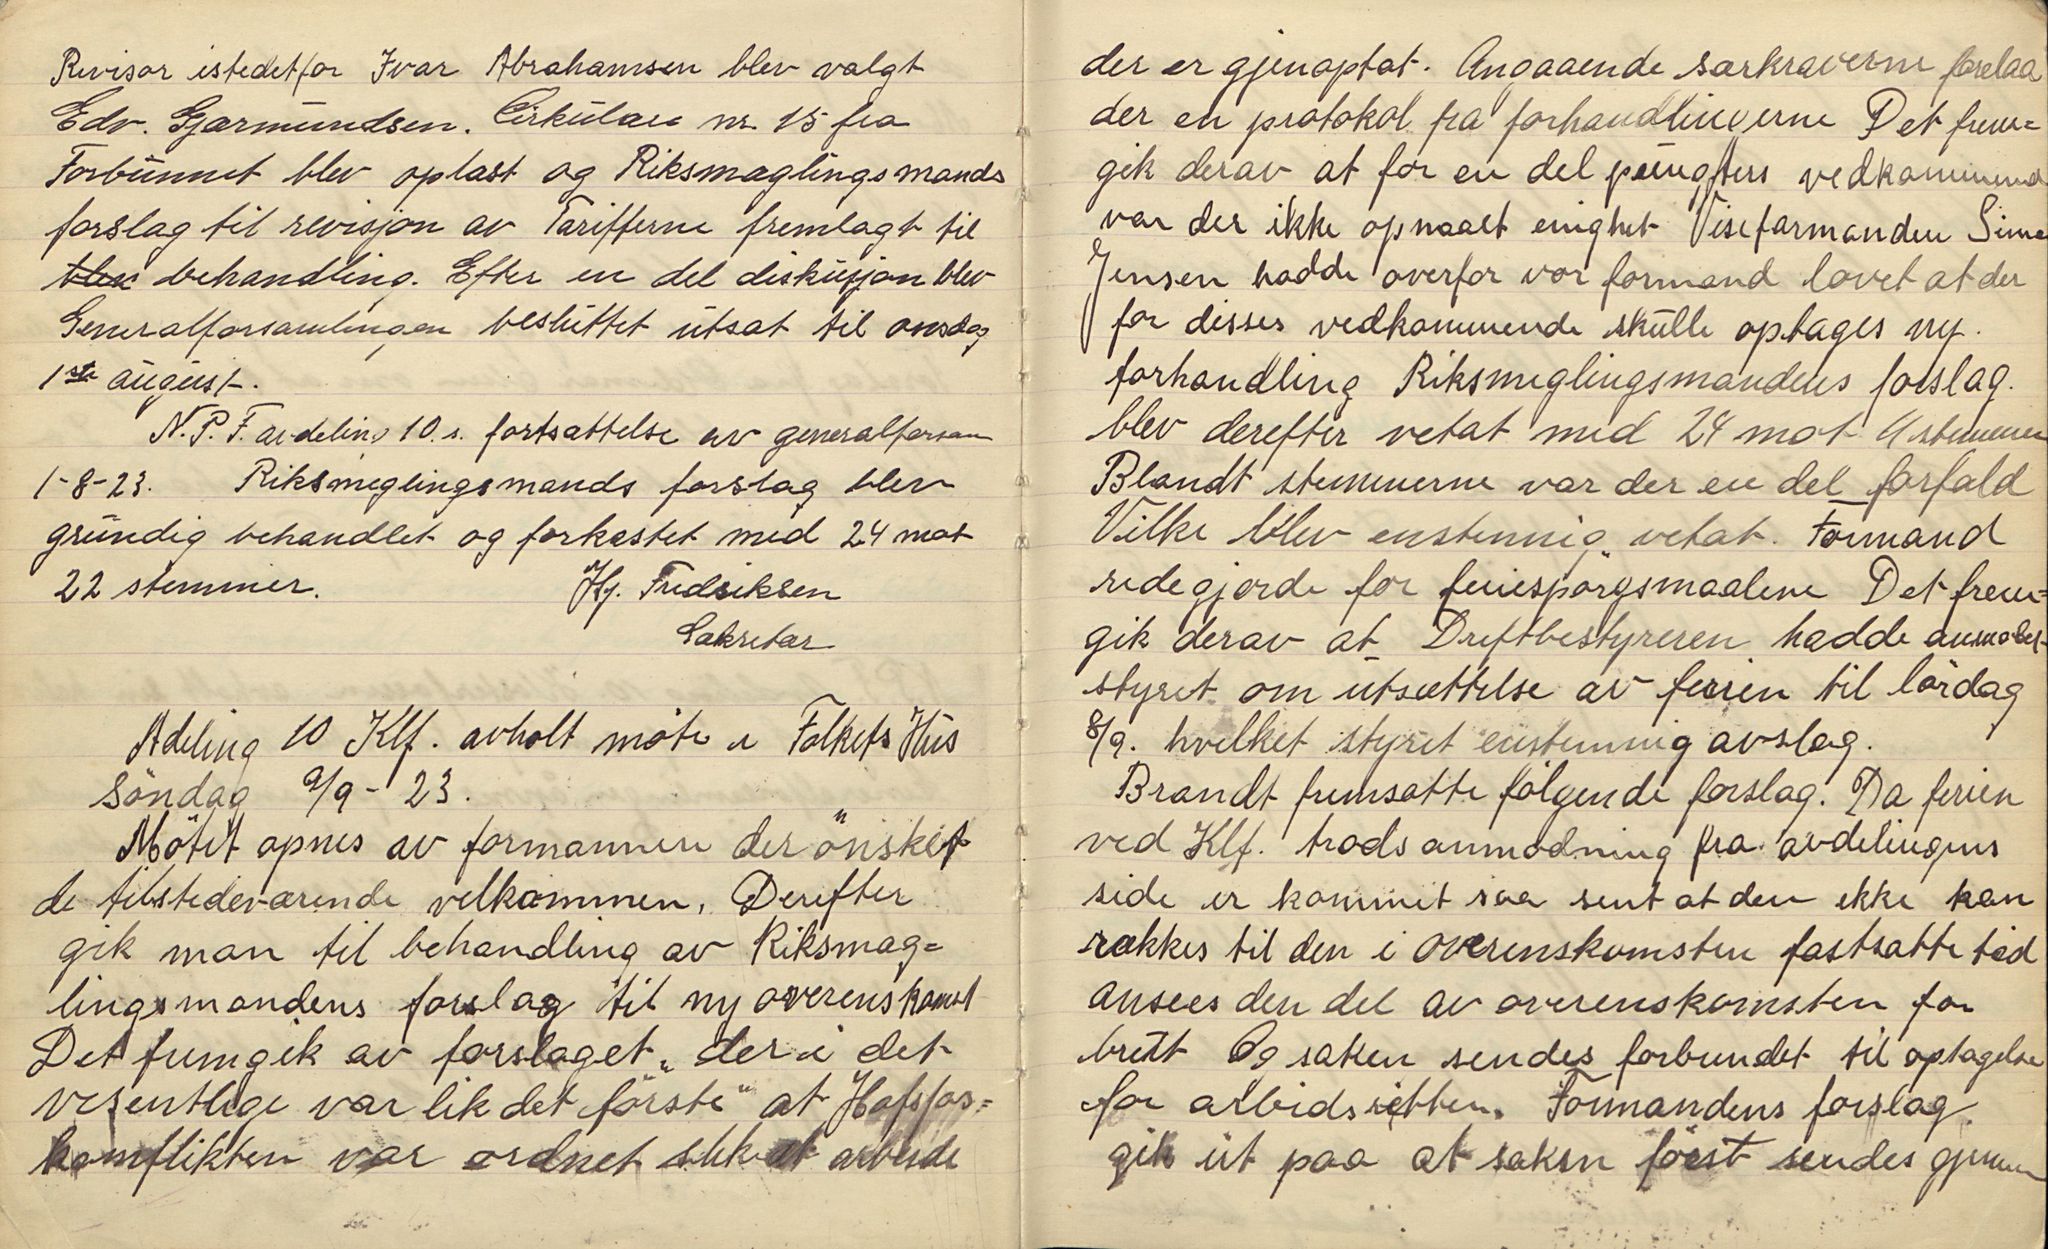 Revisor istedetfor Ivar Abrahamsen blev valgt
Edv. Gjærmundsen. Cirkulære nr. 15 fra
Forbunnet blev oplæst og Riksmæglingsmands
forslag til revisjon av Tarifferne fremlagt til
blev behandling. Efter en del diskusjon blev
Generalforsamlingen besluttet utsat til onsdag
1ste august.
N.P.F. avdeling 10.s. fortsættelse av generalforsam
1-8-23. Riksmeglingsmands forslag blev
grundig behandlet og forkastet med 24 mot
22 stemmer. Hj. Fredriksen
Sekretær
Adeling 10 Klf. avholt møte i Folkets Hus
Söndag 2/9-23.
Mötet åpnes av formannen der önsket
de tilstedeværende velkommen. Derefter
gik man til behandling av Riksmæg=
lingsmandens forslag til ny overenskomst
Det fremgik av forslaget, der i det
vesentlige var lik det förste at Hofsfos=
konflikten var ordnet slik at arbeide
der er gjenoptat. Angaaende særkraverne forelaa
der en protokol fra forhandlingerne Det frem=
gik derav at for en del vedkommend
var der ikke opnaaet enighet Viseformanden
Jensen hadde overfor vor formand lovet at der
for disses vedkommende skulle optages ny.
forhandling Riksmeglingsmandens forslag.
blev derefter vetat med 24 mot 4 stemmer
Blandt stemmerne var der en del forfald
Vilke blev enstemmig vetat. Formand
redegjorde for feriespörgsmaalene Det frem=
gik derav at Driftbestyreren hadde anmodet
styret om utsættelse av ferien til lördag
8/9. hvilket styret enstemmig avslog.
Brandt fremsatte fölgende forslag. Da ferien
ved Klf. trods anmodning fra avdelingens
side er kommet saa sent at den ikke kan
rækkes til den i overenskomsten fastsatte tid
ansees den del av overenskomsten for
brutt Og saken sendes forbundet til optagelse
for arbeidsretten. Formandens forslag
gik ut paa at saken först sendes gjennem